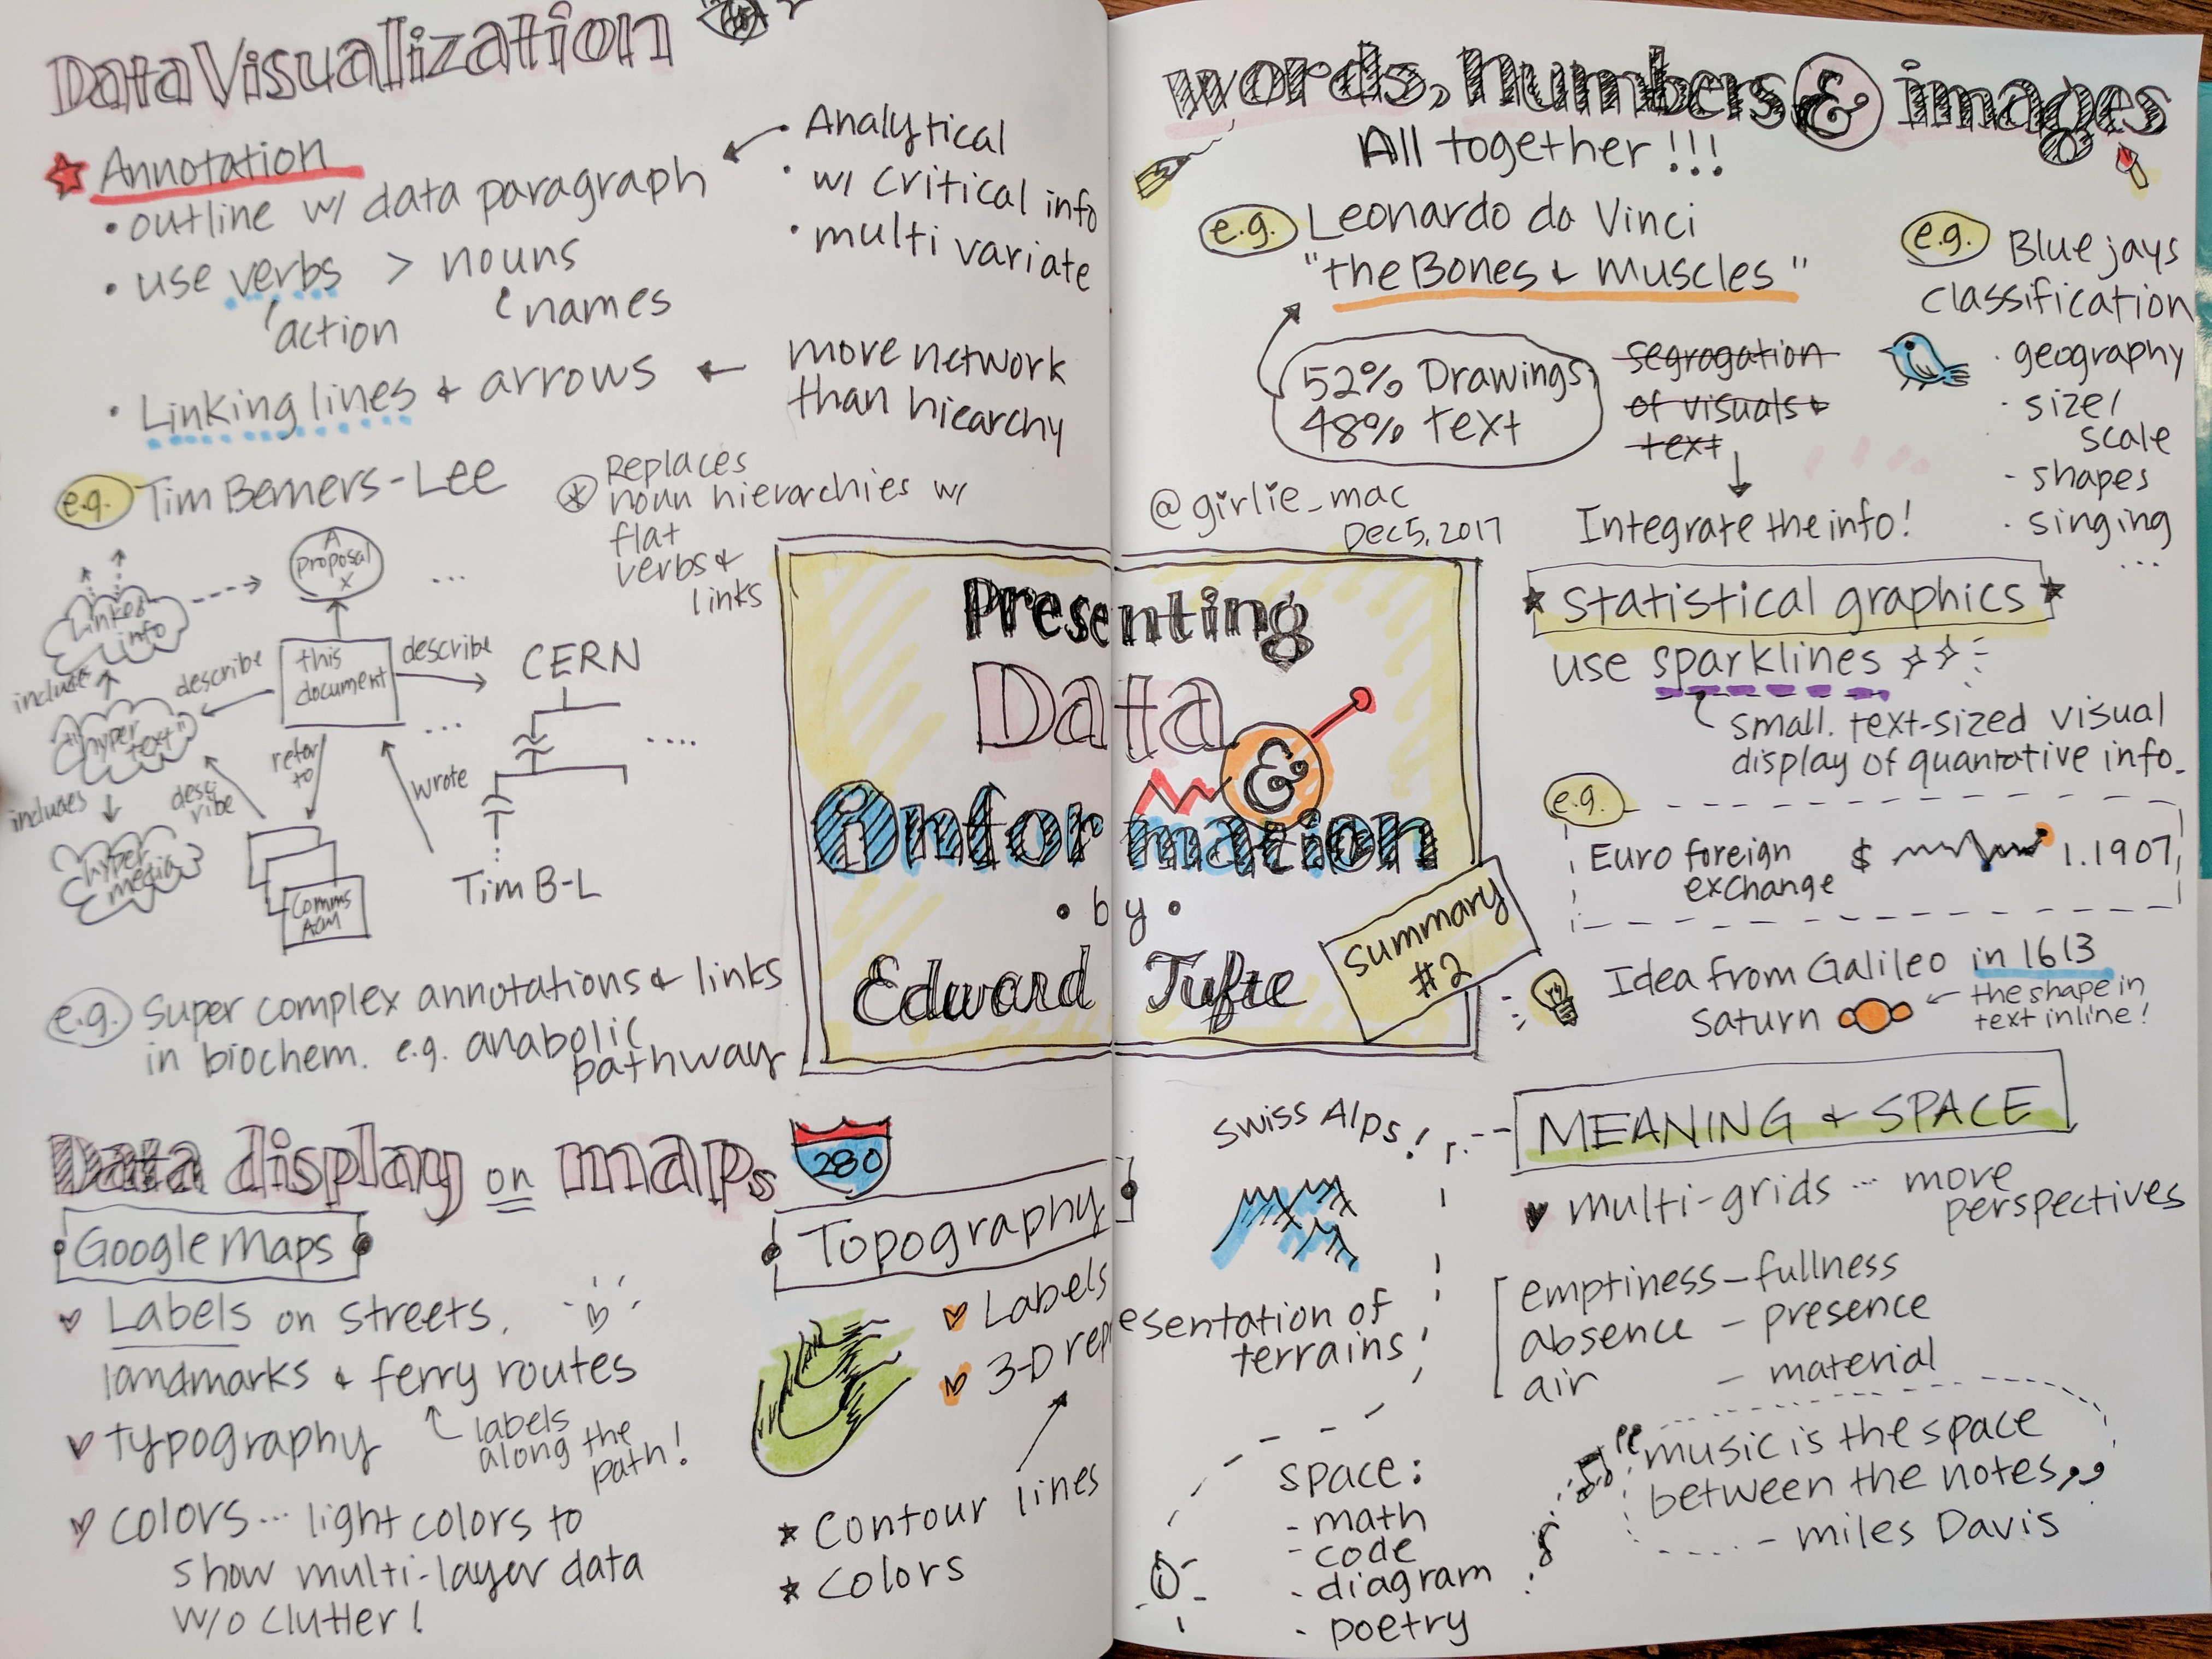 Data Visualization
Annotation
• outline w/ data paragraph
• Analytical
• w/ critical info
• multi variate
• use verbs > nouns
action
names
• Linking lines & arrows
more network
than hiearchy
e.g. Tim Berners-Lee
Replaces
noun hierarchies w/
flat
verbs &
links
A
proposal
x
...
Linked
info
this
document
describe
describe
CERN
includes
"hyper
text"
...
....
refer
to
wrote
includes
desc
ribe
hyper
media
Comms
ACM
Tim B-L
e.g. Super complex annotations & links
in biochem. e.g. anabolic
pathway
Data display on maps
280
Google Maps
Labels on streets,
landmarks & ferry routes
labels
along the
path!
typography
colors ... light colors to
show multi-layer data
w/o clutter!
Topography
Labels
3-D representation of
terrains
Contour lines
colors
Presenting
Data
&
information
• by •
Edward Tufte
summary
#2
@girlie_mac
Dec 5, 2017
words, numbers & images
All together!!!
e.g. Leonardo da Vinci
"the Bones & muscles"
52% Drawings
48% text
segragation
of visuals &
text
Integrate the info!
e.g. Blue jays
classification
· geography
· size/
scale
- shapes
· singing
...
statistical graphics
use sparklines
small. text-sized visual
display of quantative info.
e.g.
Euro foreign
exchange
$ 1.1907
Idea from Galileo in 1613
Saturn
the shape in
text inline!
MEANING & SPACE
Swiss Alps!
multi-grids ... more
perspectives
emptiness - fullness
absence - presence
air - material
space:
- math
- code
- diagram
- poetry
"music is the space
between the notes"
- miles Davis